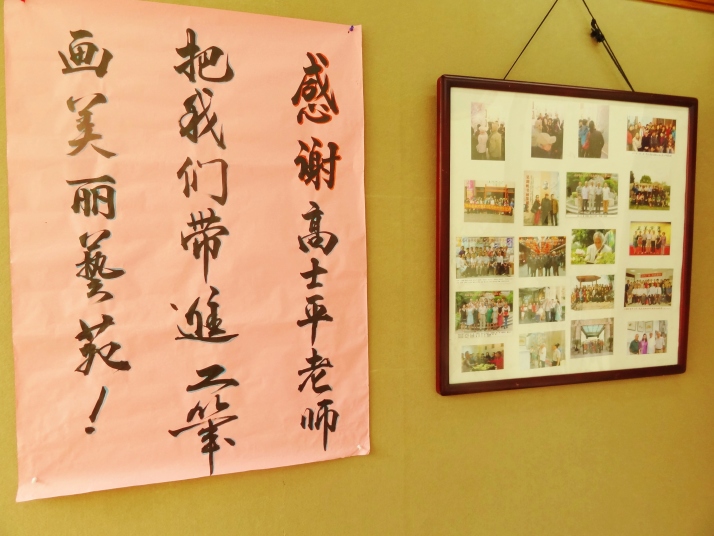 感谢高士平老师
把我们带進工筆
画美丽藝苑！